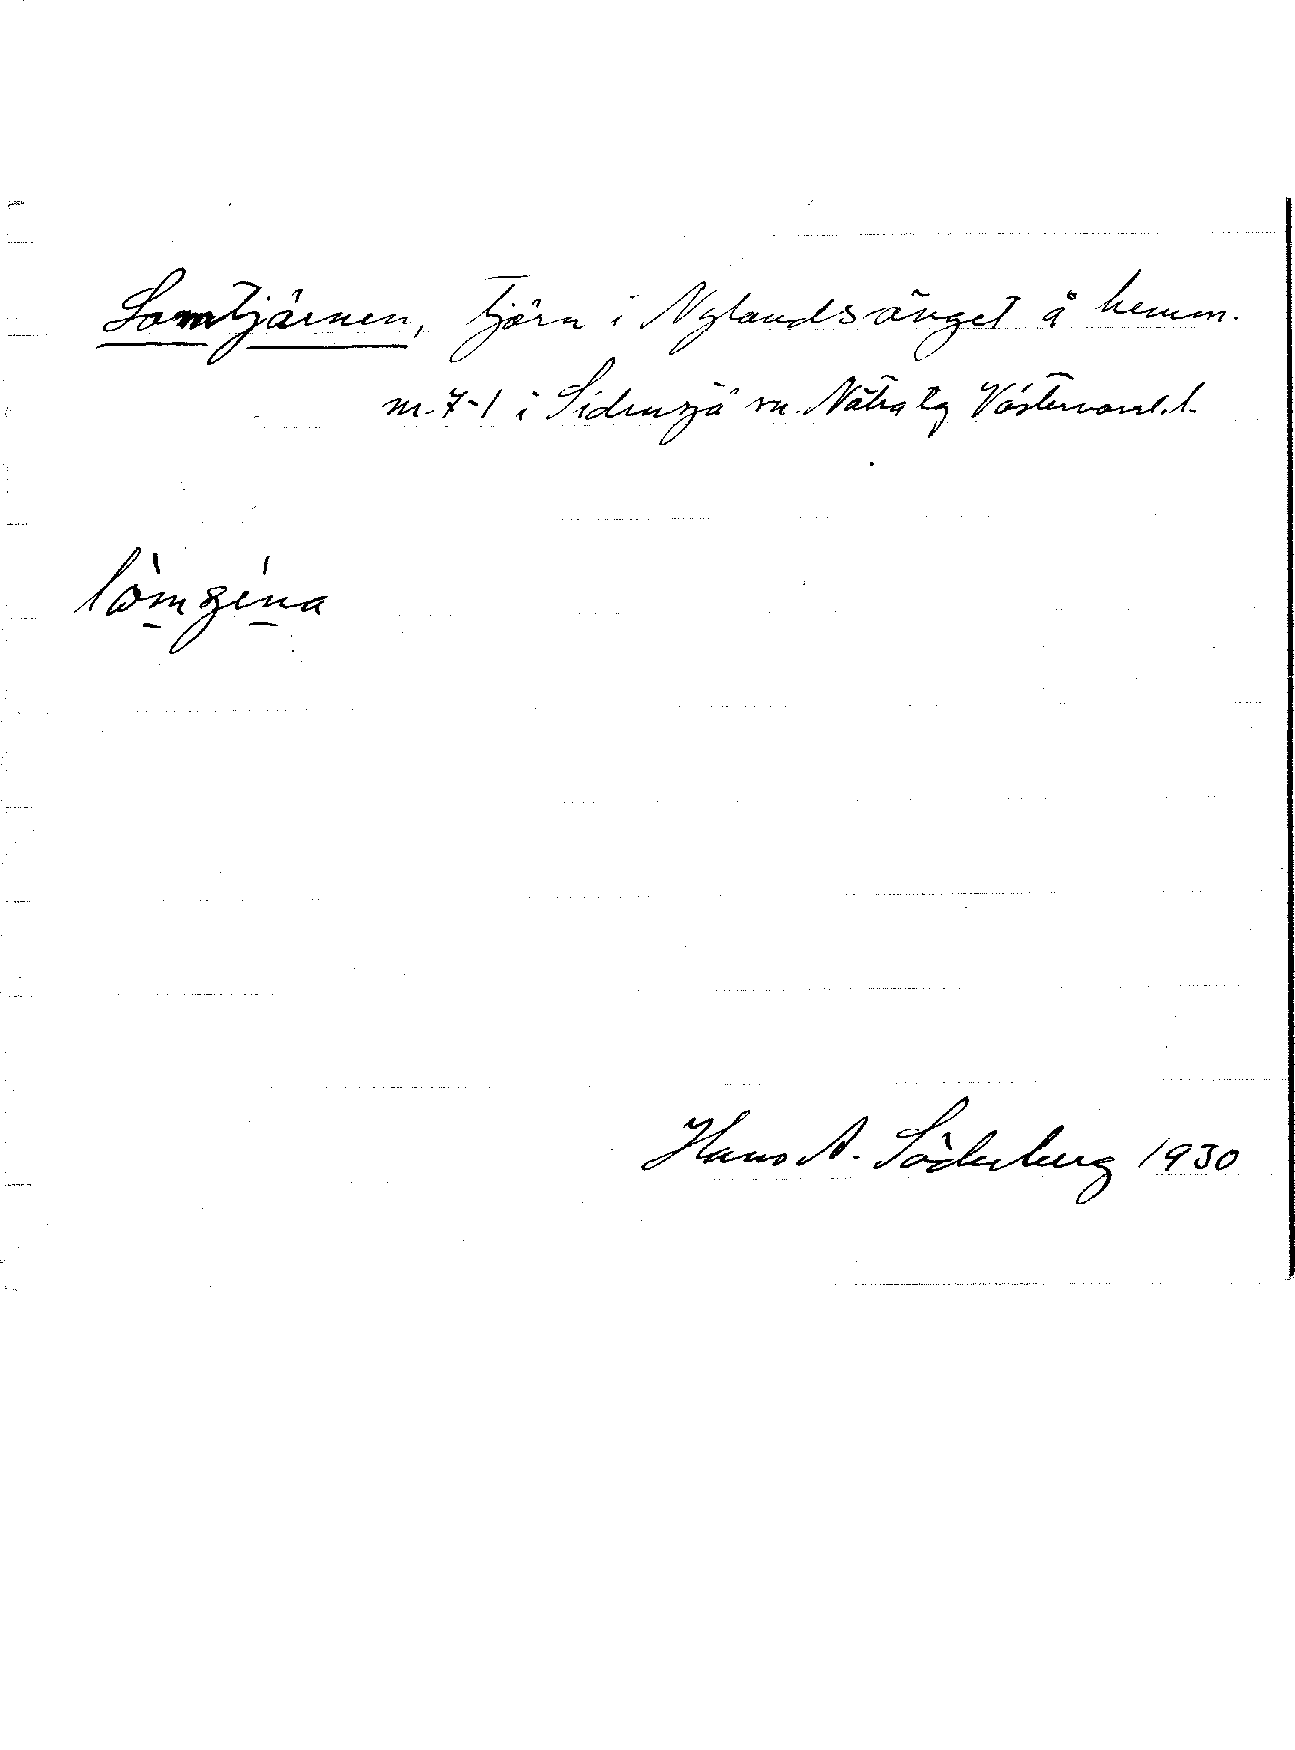 Lomtjärnen, tjärn i Nylandsänget å hemm.
nr. 7-1 i Sidensjö sn. Nätra tg Västernorrl. l.
lòmʒìna
Hans A. Söderberg 1930